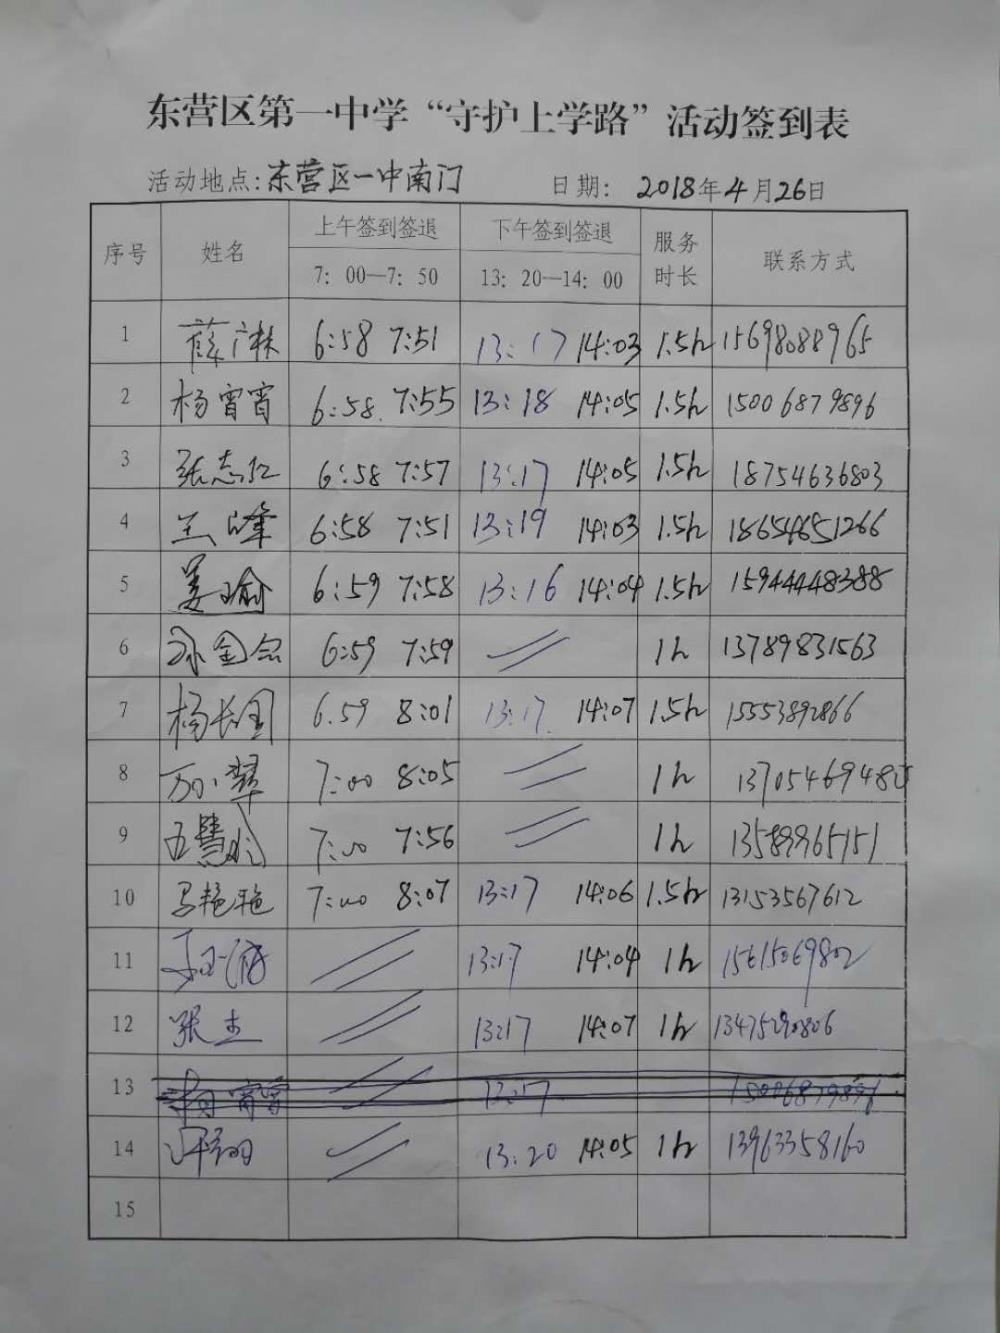 东营区第一中学“守护上学路”活动签到表
活动地点:东营区一中南门 日期: 2018年4月26日
序号 姓名 上午签到签退 下午签到签退 服务时长 联系方式
7: 00—7: 50 13: 20—14: 00
1 薛广林 6:58 7:51 13:17 14:03 1.5h 15698088965
2 杨宵宵 6:58 7:55 13:18 14:05 1.5h 15006879896
3 张志红 6:58 7:57 13:17 14:05 1.5h 18754636803
4 王峰 6:58 7:51 13:19 14:03 1.5h 18654651266
5 姜瑜 6:59 7:58 13:16 14:04 1.5h 15944448388
6 孙金 6:59 7:59 1h 13789831563
7 杨长国 6.59 8:01 13:17 14:07 1.5h 15553892866
8 7:00 8:05 1h
9 7:00 7:56 1h 13589965151
10 马艳艳 7:00 8:07 13:17 14:06 1.5h 13153567612
11 13:17 14:04 1h 15615069802
12 张杰 13:17 14:07 1h 13475290806
13 杨宵宵 13:17 15006879896
14 13:20 14:05 1h 13963358160
15